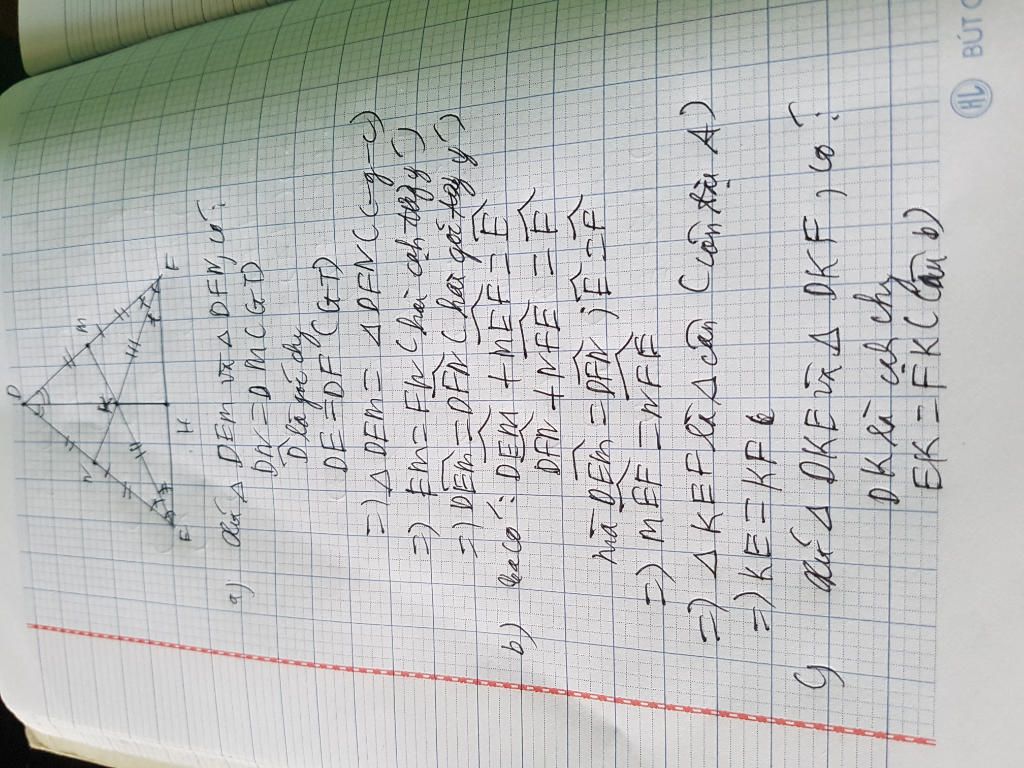 D
N
M
K
E
H
F
a) Xét △ DEM và △ DFN, có:
DN = DM (GT)
D̂ là góc chg
DE = DF (GT)
=) △ DEM = △ DFN (c-g-c)
=) EM = FN (hai cạnh tg ý)
=) DEM̂ = DFN̂ (hai góc tg ý)
b) ta có: DEM̂ + MEF̂ = Ê
DFN̂ + NFÊ = F̂
mà DEM̂ = DFN̂; Ê = F̂
=) MEF̂ = NFÊ
=) △ KEF là △ cân (cân tại A)
=) KE = KF
Xét △ DKE và △ DKF, có:
DK là cạnh chg
EK = FK (câu b)
HL BÚT C